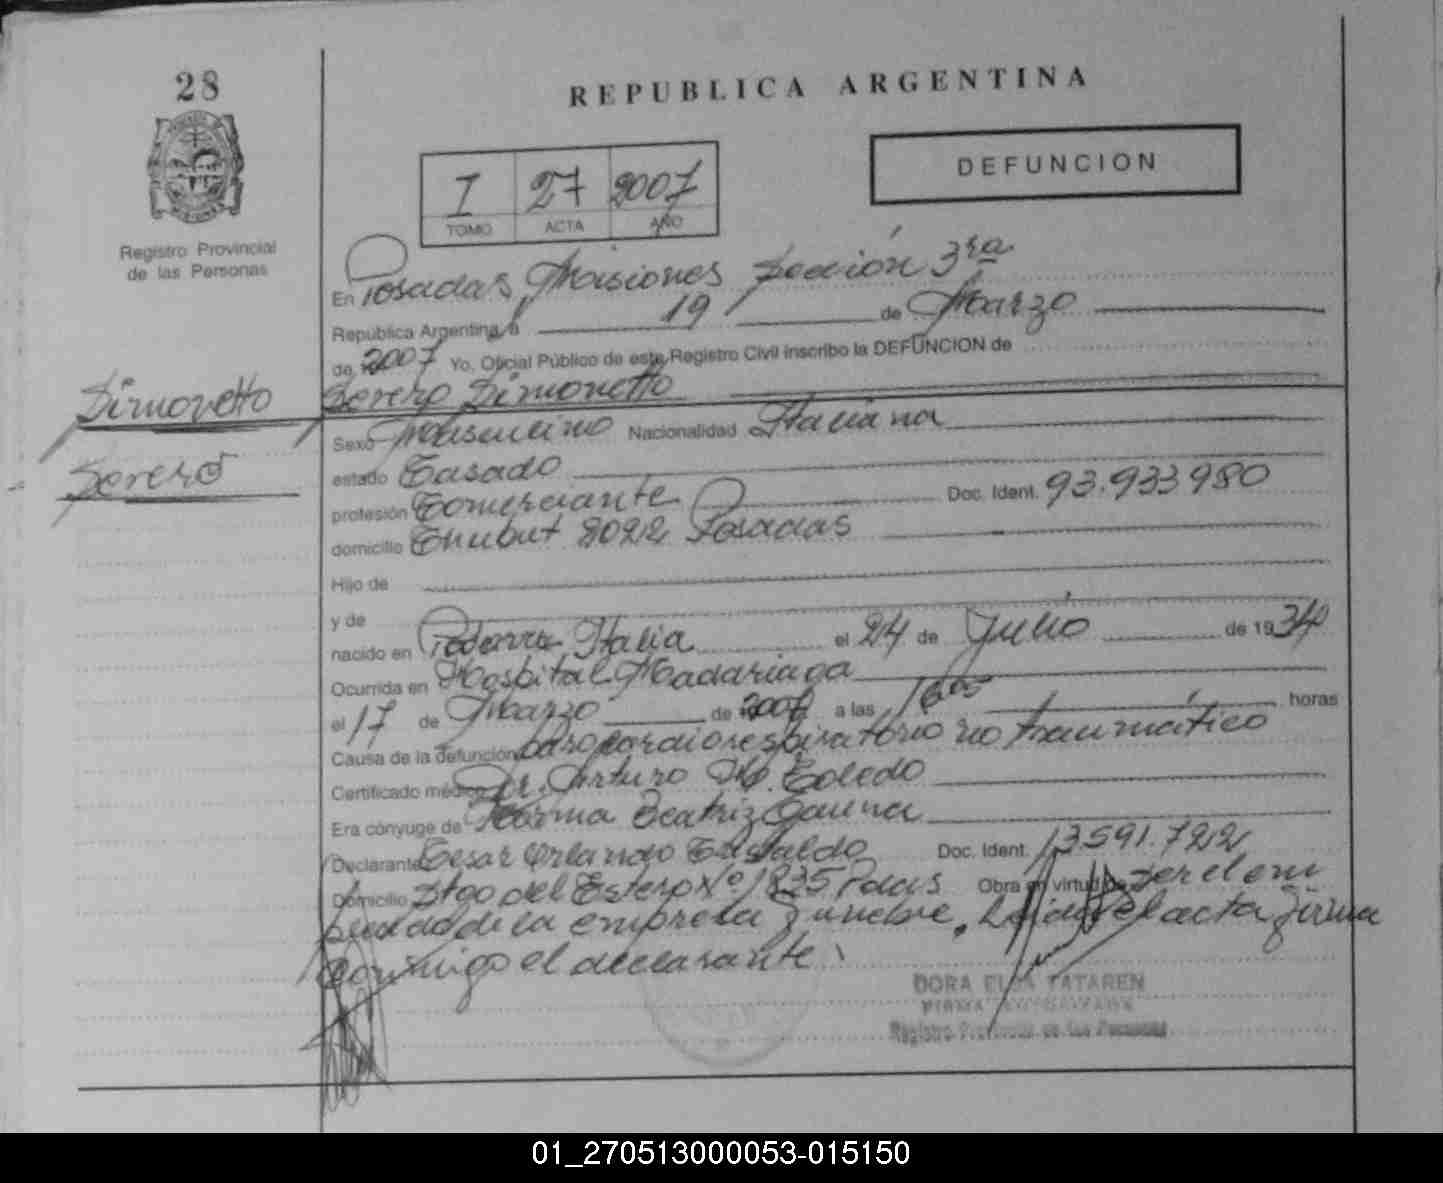 28
REPUBLICA ARGENTINA
DEFUNCION
I 27 2007
TOMO ACTA AÑO
Registro Provincial
de las Personas
En Posadas, Misiones Sección 3ra
República Argentina, a 19 de Marzo
de 2007 Yo, Oficial Público de este Registro Civil inscribo la DEFUNCION de
Simonetto Severo Simonetto
Severo
Sexo Masculino Nacionalidad Italiana
estado Casado
profesión Comerciante Doc. Ident. 93.933980
domicilio Chubut 2022 Posadas
Hijo de
y de
nacido en Italia el 24 de Julio de 1934
Ocurrida en Hospital Madariaga
el 17 de Marzo de 2007 a las 16,05 horas
Causa de la defunción paro cardiorespiratorio no traumático
Certificado médico Dr. Arturo Toledo
Era cónyuge de Norma Beatriz Gauna
Declarante Cesar Orlando Doc. Ident. 13591.722
Domicilio Stgo del Estero Nº 1835 Pdas Obra en virtud de ser el em
pleado de la empresa funebre. Leída el acta firma
conmigo el declarante.
DORA ELSA TATAREN
FIRMA AUTORIZADA
Registro Provincial de las Personas
01_270513000053-015150